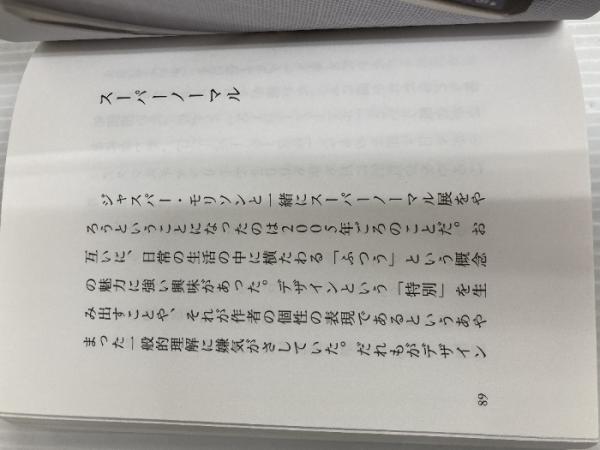 スーパーノーマル
ジャスパー・モリソンと一緒にスーパーノーマル展をや
ろうということになったのは2005年ごろのことだ。お
互いに、日常の生活の中に横たわる「ふつう」という概念
の魅力に強い興味があった。デザインという「特別」を生
み出すことや、それが作者の個性の表現であるというあや
まった一般的理解に嫌気がさしていた。だれもがデザイン
89